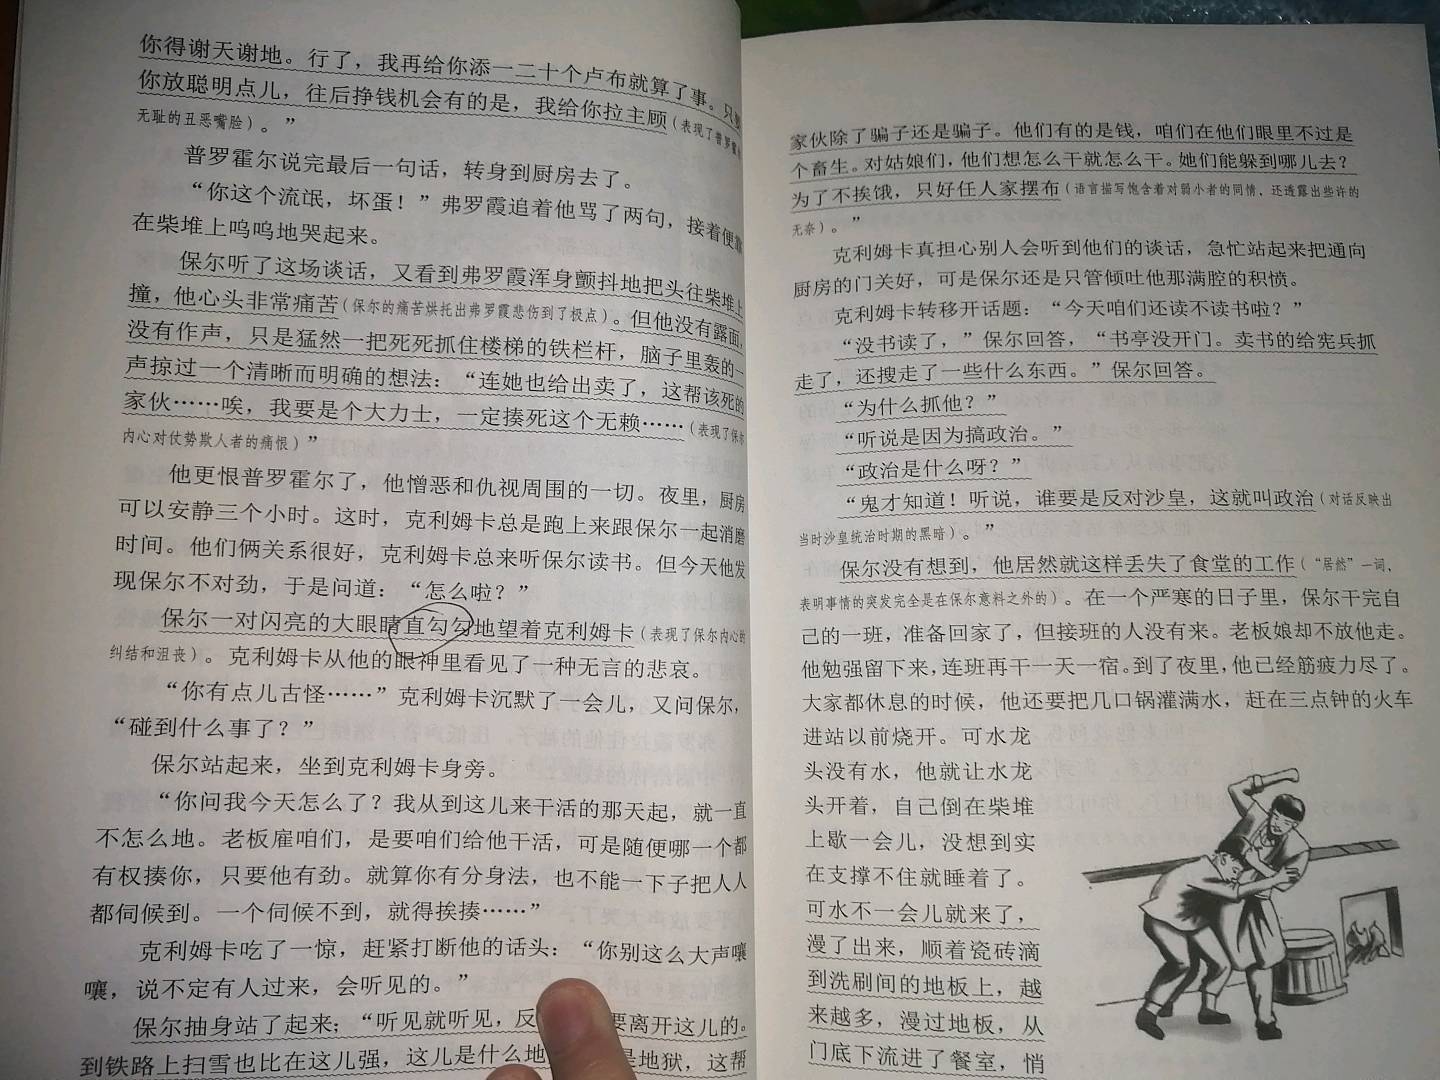 你得谢天谢地。行了，我再给你添一二十个卢布就算了事。只
你放聪明点儿，往后挣钱机会有的是，我给你拉主顾（表现了普罗霍尔
无耻的丑恶嘴脸）。”
普罗霍尔说完最后一句话，转身到厨房去了。
“你这个流氓，坏蛋！”弗罗霞追着他骂了两句，接着便靠
在柴堆上呜呜地哭起来。
保尔听了这场谈话，又看到弗罗霞浑身颤抖地把头往柴堆上
撞，他心头非常痛苦（保尔的痛苦烘托出弗罗霞悲伤到了极点）。但他没有露面，
没有作声，只是猛然一把死死抓住楼梯的铁栏杆，脑子里轰的一
声掠过一个清晰而明确的想法：“连她也给出卖了，这帮该死的
家伙……唉，我要是个大力士，一定揍死这个无赖……（表现了保尔
内心对仗势欺人者的痛恨）”
他更恨普罗霍尔了，他憎恶和仇视周围的一切。夜里，厨房
可以安静三个小时。这时，克利姆卡总是跑上来跟保尔一起消磨
时间。他们俩关系很好，克利姆卡总来听保尔读书。但今天他发
现保尔不对劲，于是问道：“怎么啦？”
保尔一对闪亮的大眼睛直勾勾地望着克利姆卡（表现了保尔内心的
纠结和沮丧）。克利姆卡从他的眼神里看见了一种无言的悲哀。
“你有点儿古怪……”克利姆卡沉默了一会儿，又问保尔，
“碰到什么事了？”
保尔站起来，坐到克利姆卡身旁。
“你问我今天怎么了？我从到这儿来干活的那天起，就一直
不怎么地。老板雇咱们，是要咱们给他干活，可是随便哪一个都
有权揍你，只要他有劲。就算你有分身法，也不能一下子把人人
都伺候到。一个伺候不到，就得挨揍……”
克利姆卡吃了一惊，赶紧打断他的话头：“你别这么大声嚷
嚷，说不定有人过来，会听见的。”
保尔抽身站了起来；“听见就听见，反 要离开这儿的。
到铁路上扫雪也比在这儿强，这儿是什么地 是地狱，这帮
家伙除了骗子还是骗子。他们有的是钱，咱们在他们眼里不过是
个畜生。对姑娘们，他们想怎么干就怎么干。她们能躲到哪儿去？
为了不挨饿，只好任人家摆布（语言描写饱含着对弱小者的同情，还透露出些许的
无奈）。”
克利姆卡真担心别人会听到他们的谈话，急忙站起来把通向
厨房的门关好，可是保尔还是只管倾吐他那满腔的积愤。
克利姆卡转移开话题：“今天咱们还读不读书啦？”
“没书读了，”保尔回答，“书亭没开门。卖书的给宪兵抓
走了，还搜走了一些什么东西。”保尔回答。
“为什么抓他？”
“听说是因为搞政治。”
“政治是什么呀？”
“鬼才知道！听说，谁要是反对沙皇，这就叫政治（对话反映出
当时沙皇统治时期的黑暗）。”
保尔没有想到，他居然就这样丢失了食堂的工作（“居然”一词，
表明事情的突发完全是在保尔意料之外的）。在一个严寒的日子里，保尔干完自
己的一班，准备回家了，但接班的人没有来。老板娘却不放他走。
他勉强留下来，连班再干一天一宿。到了夜里，他已经筋疲力尽了。
大家都休息的时候，他还要把几口锅灌满水，赶在三点钟的火车
进站以前烧开。可水龙
头没有水，他就让水龙
头开着，自己倒在柴堆
上歇一会儿，没想到实
在支撑不住就睡着了。
可水不一会儿就来了，
漫了出来，顺着瓷砖滴
到洗刷间的地板上，越
来越多，漫过地板，从
门底下流进了餐室，悄